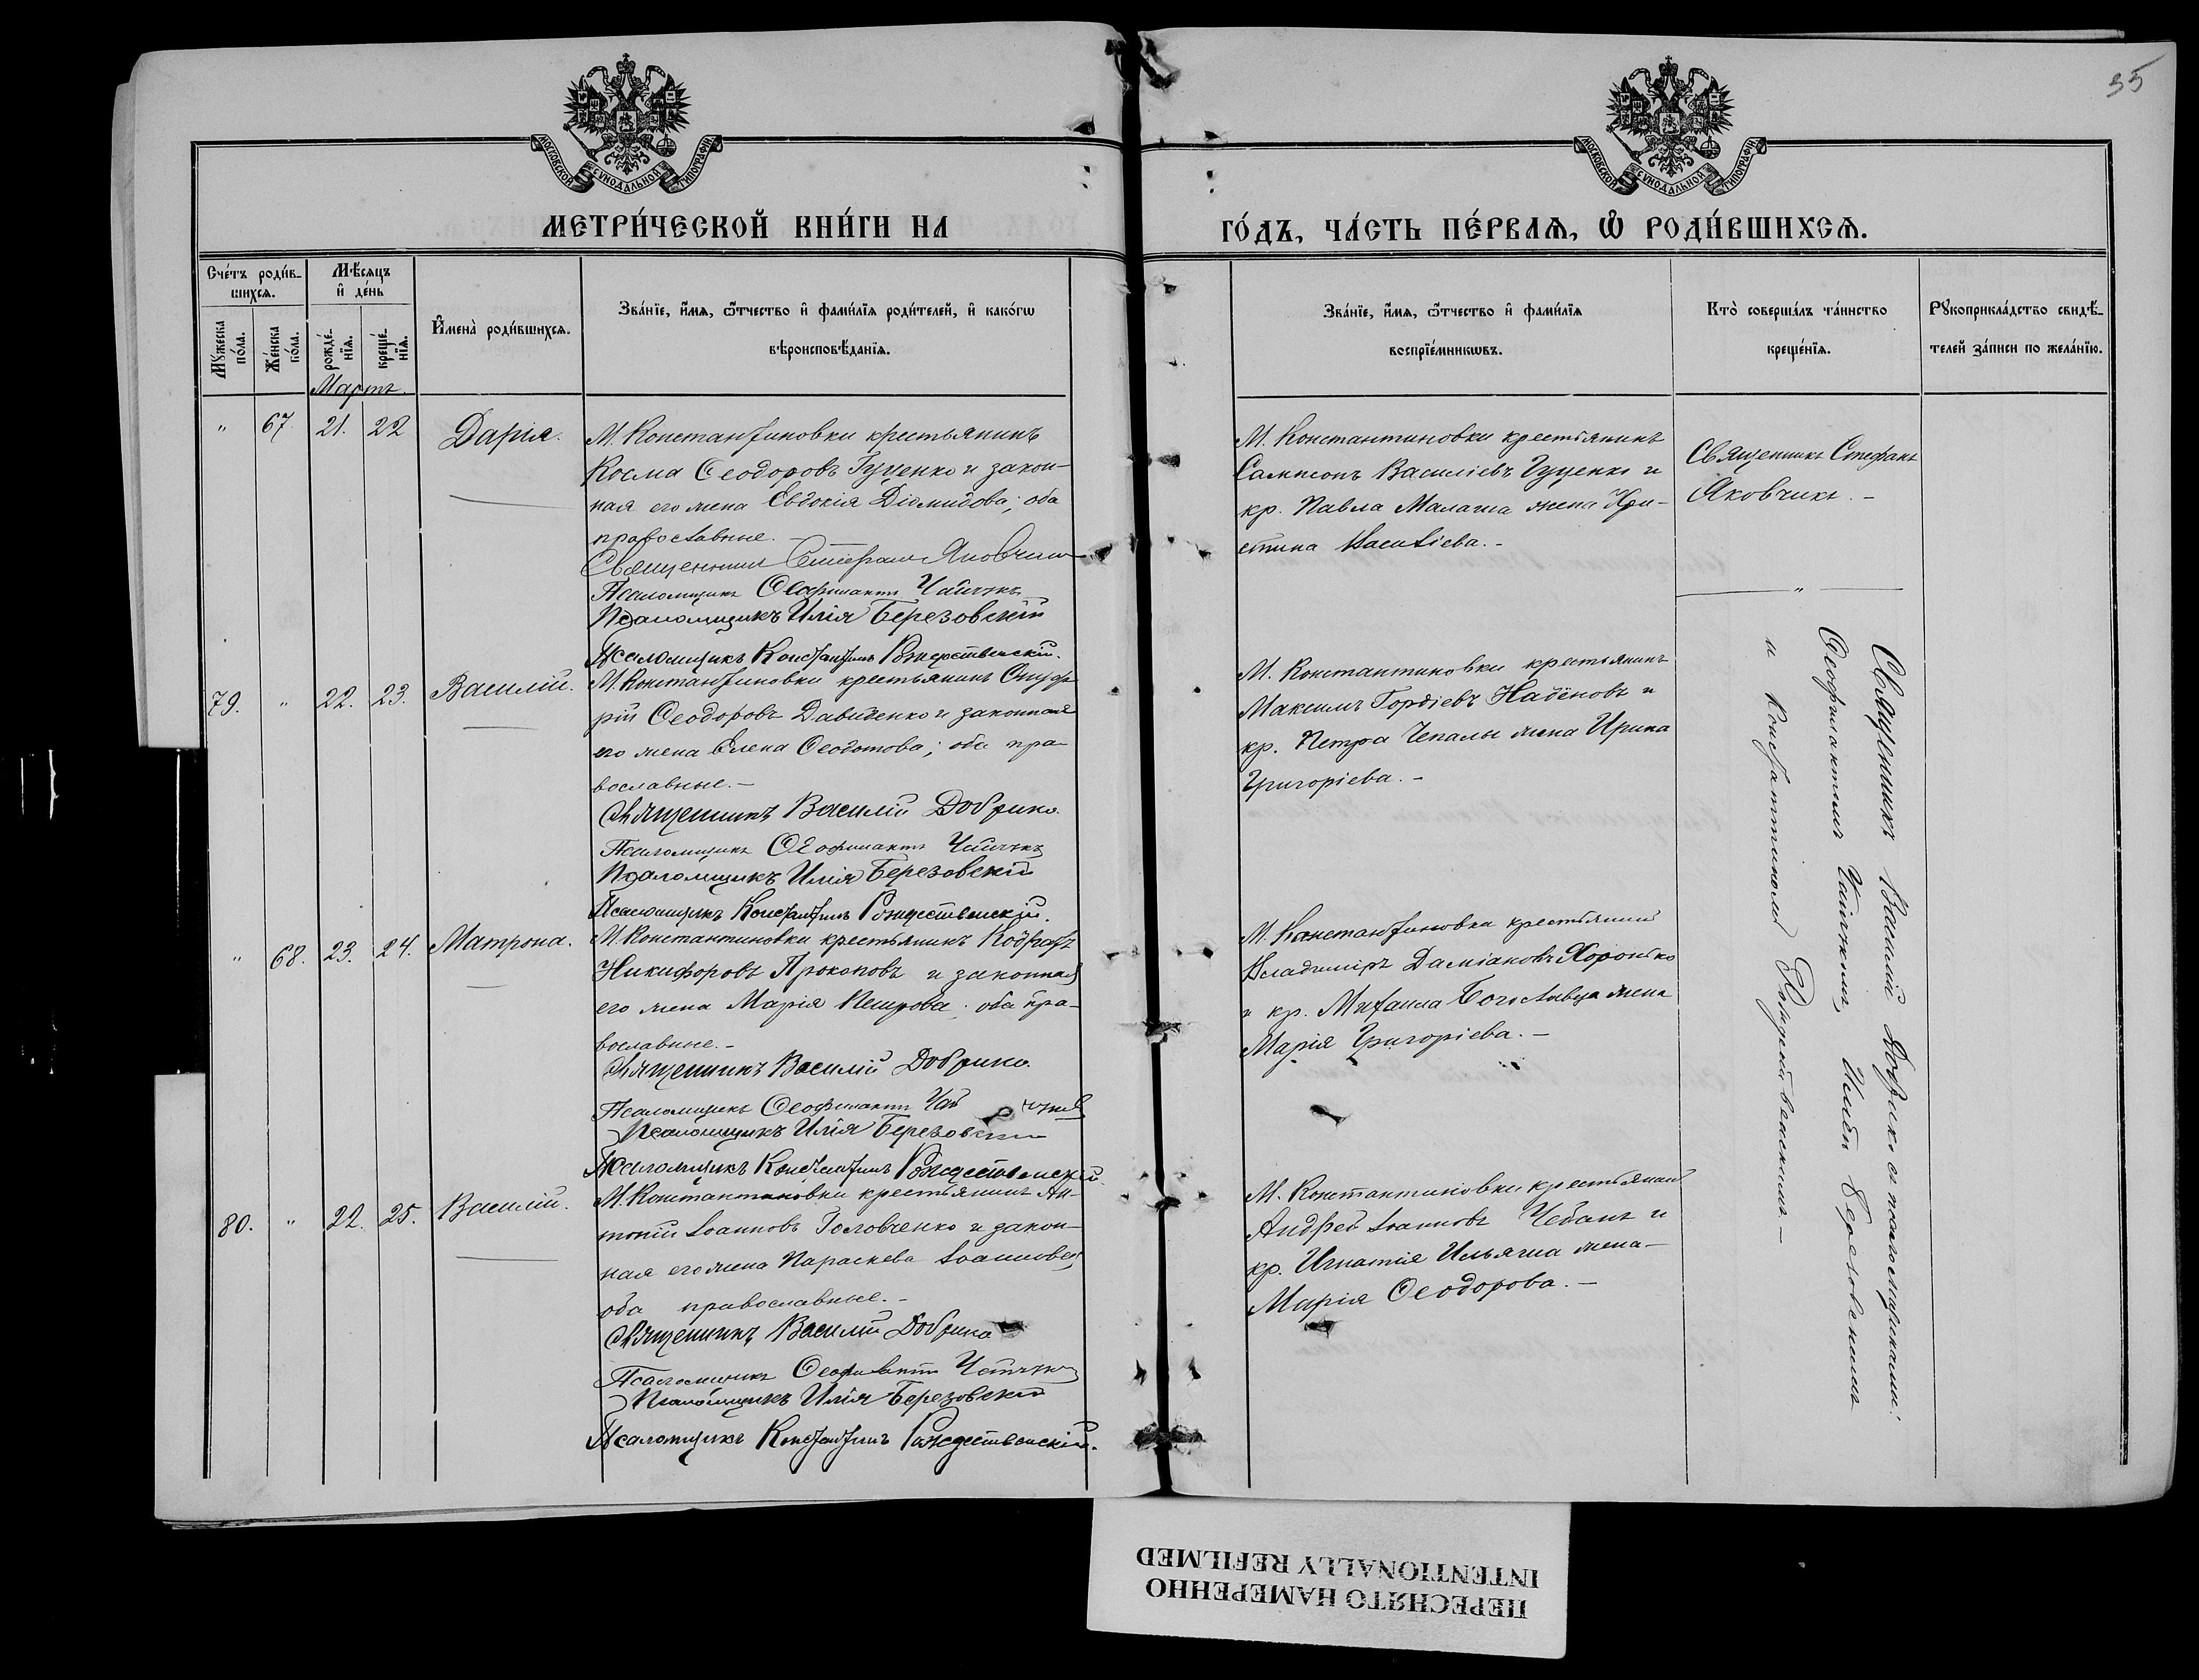 35
МОСКОВСКОЙ СѴНОДАЛЬНОЙ ТИПОГРАФІИ
МОСКОВСКОЙ СѴНОДАЛЬНОЙ ТИПОГРАФІИ
МЕТРИ́ЧЕСКОЙ КНИ́ГИ НА
ГО́ДЪ, ЧА́СТЬ ПЕ́РВАѦ, Ѽ РОДИ́ВШИХСѦ.
Сче́тъ роди́в-
шихсѧ.
Мꙋ́жеска
по́ла.
Же́нска
по́ла.
Мѣ́сѧцъ
и҆ де́нь
рожде́-
нїѧ.
креще́-
нїѧ.
И҆мена̀ роди́вшихсѧ.
Зва́нїе, и҆́мѧ, ѻ҆́тчество и҆ фамі́лїѧ роди́телей, и҆ како́гѡ
вѣроисповѣ́данїѧ.
Зва́нїе, и҆́мѧ, ѻ҆́тчество и҆ фамі́лїѧ
воспрїе́мникѡвъ.
Кто̀ соверша́лъ та́инство
креще́нїѧ.
Рꙋкоприкла́дство свидѣ́-
телей за́писи по жела́нїю.
Мартъ.
" 67. 21. 22 Дарія.
М. Константиновки крестьянинъ
Косма Ѳеодоровъ Гуценко и закон-
ная его жена Евдокія Діомидова; оба
православные.
Священникъ Стефанъ Яковчикъ
Псаломщикъ Ѳеофилактъ
Псаломщикъ Илія Березовскій
Псаломщикъ Константинъ Рождественскій.
М. Константиновки крестьянинъ
Сампсонъ Василіевъ Гуценко и
кр. Павла Малаша жена Хри-
стина Василіева. -
Священникъ Стефанъ
Яковчикъ. -
"
79. " 22. 23. Василій.
М. Константиновки крестьянинъ Онуф-
рій Ѳеодоровъ Давиденко и законная
его жена Елена Ѳеодотова; оба пра-
вославные. -
Священникъ Василій
Псаломщикъ Ѳеофилактъ
Псаломщикъ Илія Березовскій
Псаломщикъ Константинъ Рождественскій.
М. Константиновки крестьянинъ
Максимъ Гордіевъ Надёновъ и
кр. Петра Чепалы жена Ирина
Григоріева. -
" 68. 23. 24. Матрона.
М. Константиновки крестьянинъ Кодратъ
Никифоровъ Прокоповъ и законная
его жена Марія Петрова; оба пра-
вославные. -
Священникъ Василій
Псаломщикъ Ѳеофилактъ
Псаломщикъ Илія Березовскій
Псаломщикъ Константинъ Рождественскій.
М. Константиновки крестьянинъ
Владиміръ Даміановъ Хоронько
и кр. Михаила Богославца жена
Марія Григоріева. -
80. " 22. 25. Василій.
М. Константиновки крестьянинъ Ан-
тоній Іоанновъ Головченко и закон-
ная его жена Параскева Іоаннова;
оба православные. -
Священникъ Василій
Псаломщикъ Ѳеофилактъ
Псаломщикъ Илія Березовскій
Псаломщикъ Константинъ Рождественскій.
М. Константиновки крестьянинъ
Андрей Іоанновъ Чебанъ и
кр. Игнатія Ильяша жена
Марія Ѳеодорова. -
Священникъ Василій съ псаломщиками:
Ѳеофилактомъ Иліею Березовскимъ
и Константиномъ Рождественскимъ -
ПЕРЕСНЯТО НАМЕРЕННО
INTENTIONALLY REFILMED